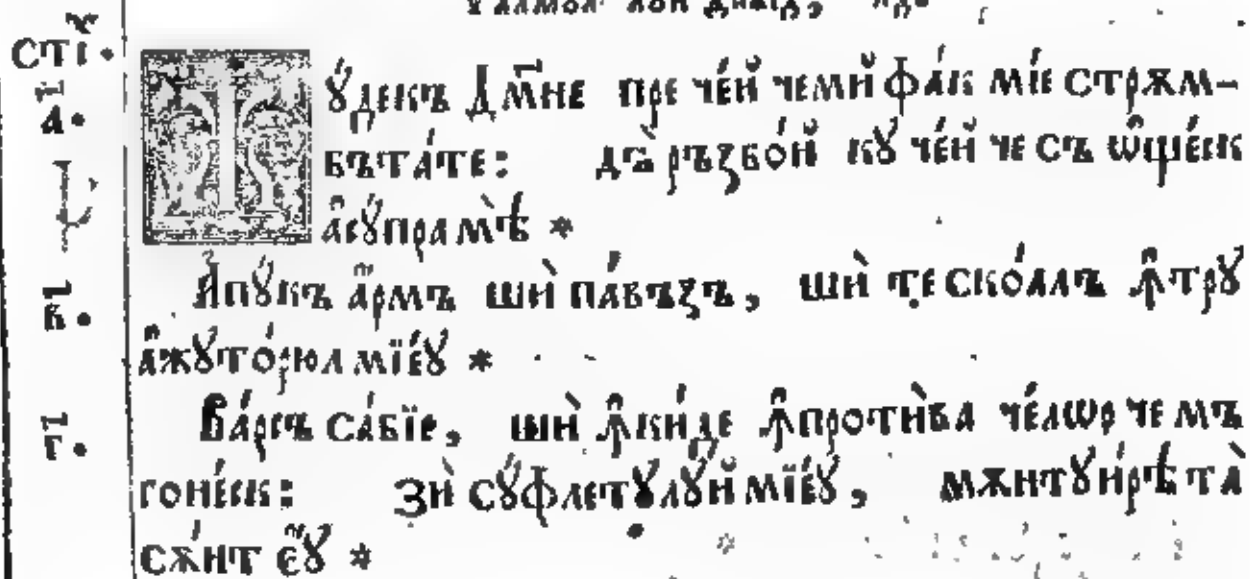 ѰАЛМОЛ ЛꙋЙ ДАВІД,
стї.
а҃.
Жꙋдекъ Дⷨ҇не пре че́й чемѝ фа́к мі́е стрѫм-
бъта́те: дъ̀ ръꙁбо́й кꙋ че́й че съ ѡще́ск
асꙋпра мѣ *
в҃.
Апꙋкъ а́рмъ шѝ па́въꙁъ, шѝ те скоалъ ꙟ҆трꙋ
ажꙋто́рюл мїе́ꙋ *
г҃.
Ва́рсъ са́бїе, шѝ ꙟ҆ки́де ꙟ҆проти́ва че́лѡр че мъ
гоне́ск: зѝ сꙋ́флетꙋлꙋ́й мїе́ꙋ, мѫнтꙋи́рѣ та̀
сѫ́нт є҆ꙋ *